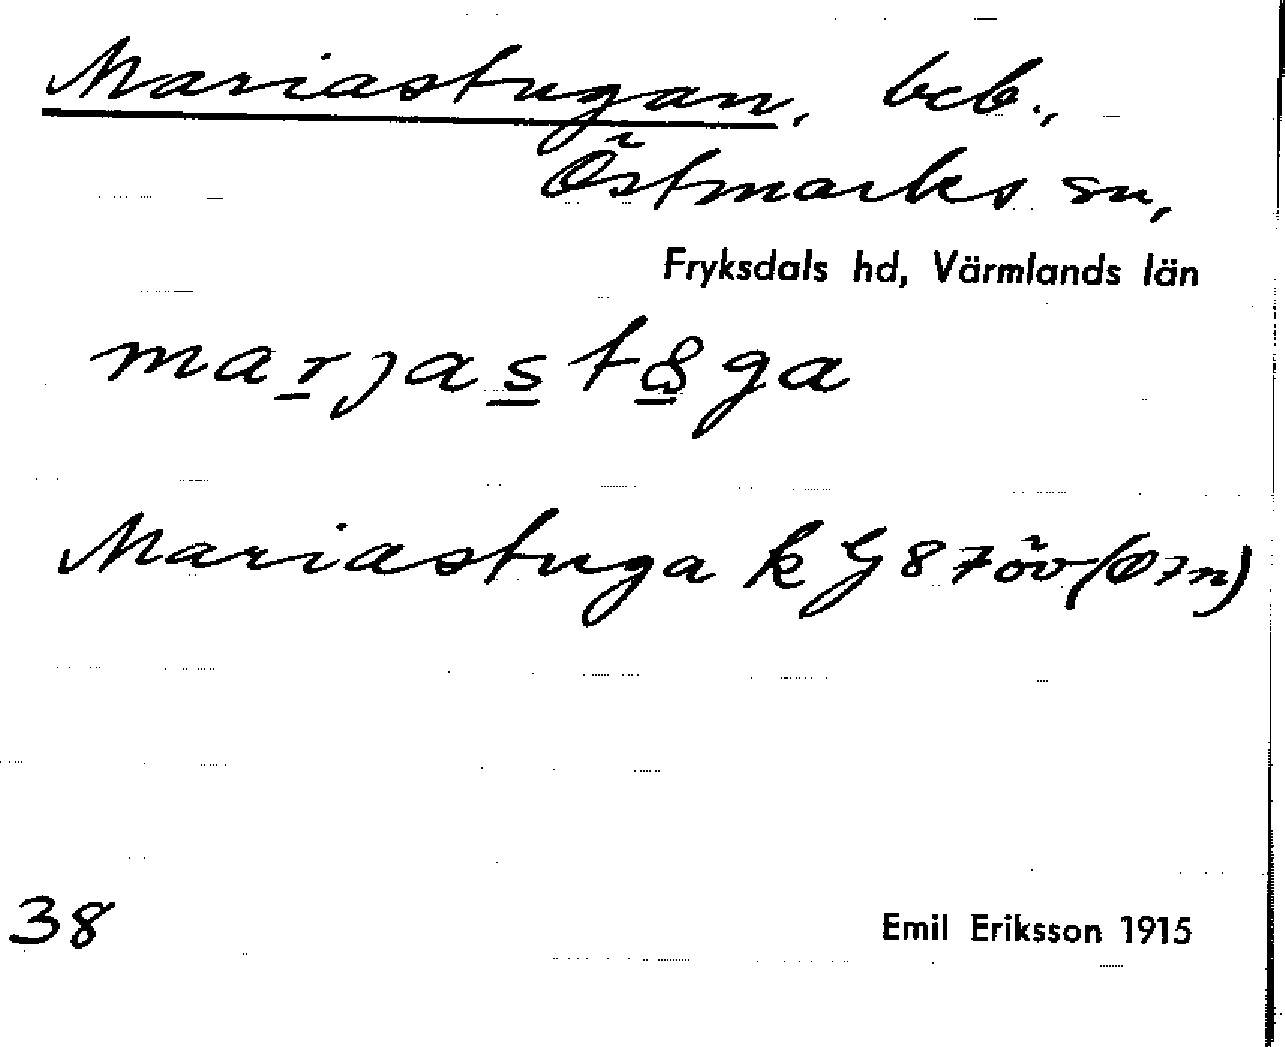 Mariastugan, beb.,
Östmarks sn,
Fryksdals hd, Värmlands län
marjast8ga
Mariastuga k G 87 öv (Ö7n)
38
Emil Eriksson 1915